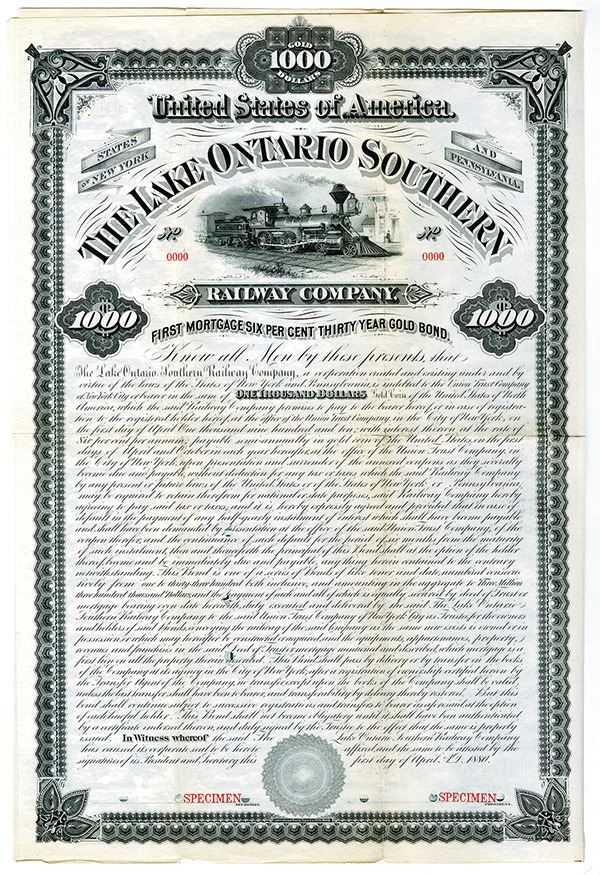 GOLD
1000
DOLLARS
United States of America.
STATES OF NEW YORK
AND PENNSYLVANIA.
THE LAKE ONTARIO SOUTHERN
No.
0000
No.
0000
RAILWAY COMPANY
1000
1000
FIRST MORTGAGE SIX PER CENT THIRTY YEAR GOLD BOND.
Know all Men by these presents, that
The Lake Ontario Southern Railway Company, a corporation created and existing under and by
virtue of the laws of the States of New York and Pennsylvania, is indebted to the Union Trust Company
of New York City or bearer in the sum of ONE THOUSAND DOLLARS Gold Coin of the United States of North
America, which the said Railway Company promises to pay to the bearer, or in case of registra-
tion to the registered holder hereof, at the office of the Union Trust Company in the City of New York, on
the first day of April One thousand nine hundred and ten, with interest thereon at the rate of
Six per cent per annum, payable semi-annually in gold coin of the United States, on the first
days of April and October in each year hereafter, at the office of the Union Trust Company, in
the City of New York, upon presentation and surrender of the annexed coupons as they severally
become due and payable, without deduction for any tax or taxes which the said Railway Company
by any present or future laws of the United States or of the States of New York or Pennsylvania,
may be required to retain therefrom for national or state purposes, said Railway Company hereby
agreeing to pay said tax or taxes; and it is hereby expressly agreed and provided that in case of
default in the payment of any half-yearly instalment of interest which shall have become payable
and shall have been demanded by presentation at the office of the said Union Trust Company, of the
coupon therefor, and the continuance of such default for the period of six months from the maturity
of such instalment, then and thenceforth the principal of this Bond shall at the option of the holder
thereof become and be immediately due and payable, anything herein contained to the contrary
notwithstanding. This Bond is one of a series of Bonds of like tenor and date, numbered consecu-
tively from one to thirty three hundred both inclusive, and amounting in the aggregate to Three Million
three hundred thousand Dollars, and the payment of each and all of which is equally secured by deed of Trust or
mortgage bearing even date herewith, duly executed and delivered by the said The Lake Ontario
Southern Railway Company to the said Union Trust Company of New York City as Trustee for the owners
and holders of said Bonds, conveying the railway of the said Company as the same now exists, is owned or in
possession or which may hereafter be constructed or acquired, and the equipments, appurtenances, property,
revenues and franchises in the said deed of Trust or mortgage mentioned and described, which mortgage is a
first lien on all the property therein described. This Bond shall pass by delivery or by transfer on the books
of the Company at its agency in the City of New York; after a registration of ownership certified hereon by
the Transfer Agent of the Company, no transfer except upon the books of the Company shall be valid,
unless the last transfer shall have been to bearer, and transferability by delivery thereby restored. But this
bond shall continue subject to successive registrations and transfers to bearer as aforesaid at the option
of each lawful holder. This Bond shall not become obligatory until it shall have been authenticated
by a certificate endorsed thereon, and duly signed by the Trustee to the effect that the same is properly
issued. In Witness whereof the said The Lake Ontario Southern Railway Company
has caused its corporate seal to be hereto affixed, and the same to be attested by the
signatures of its President and Secretary this first day of April A.D. 1880.
SPECIMEN
SECRETARY.
SPECIMEN
PRESIDENT.